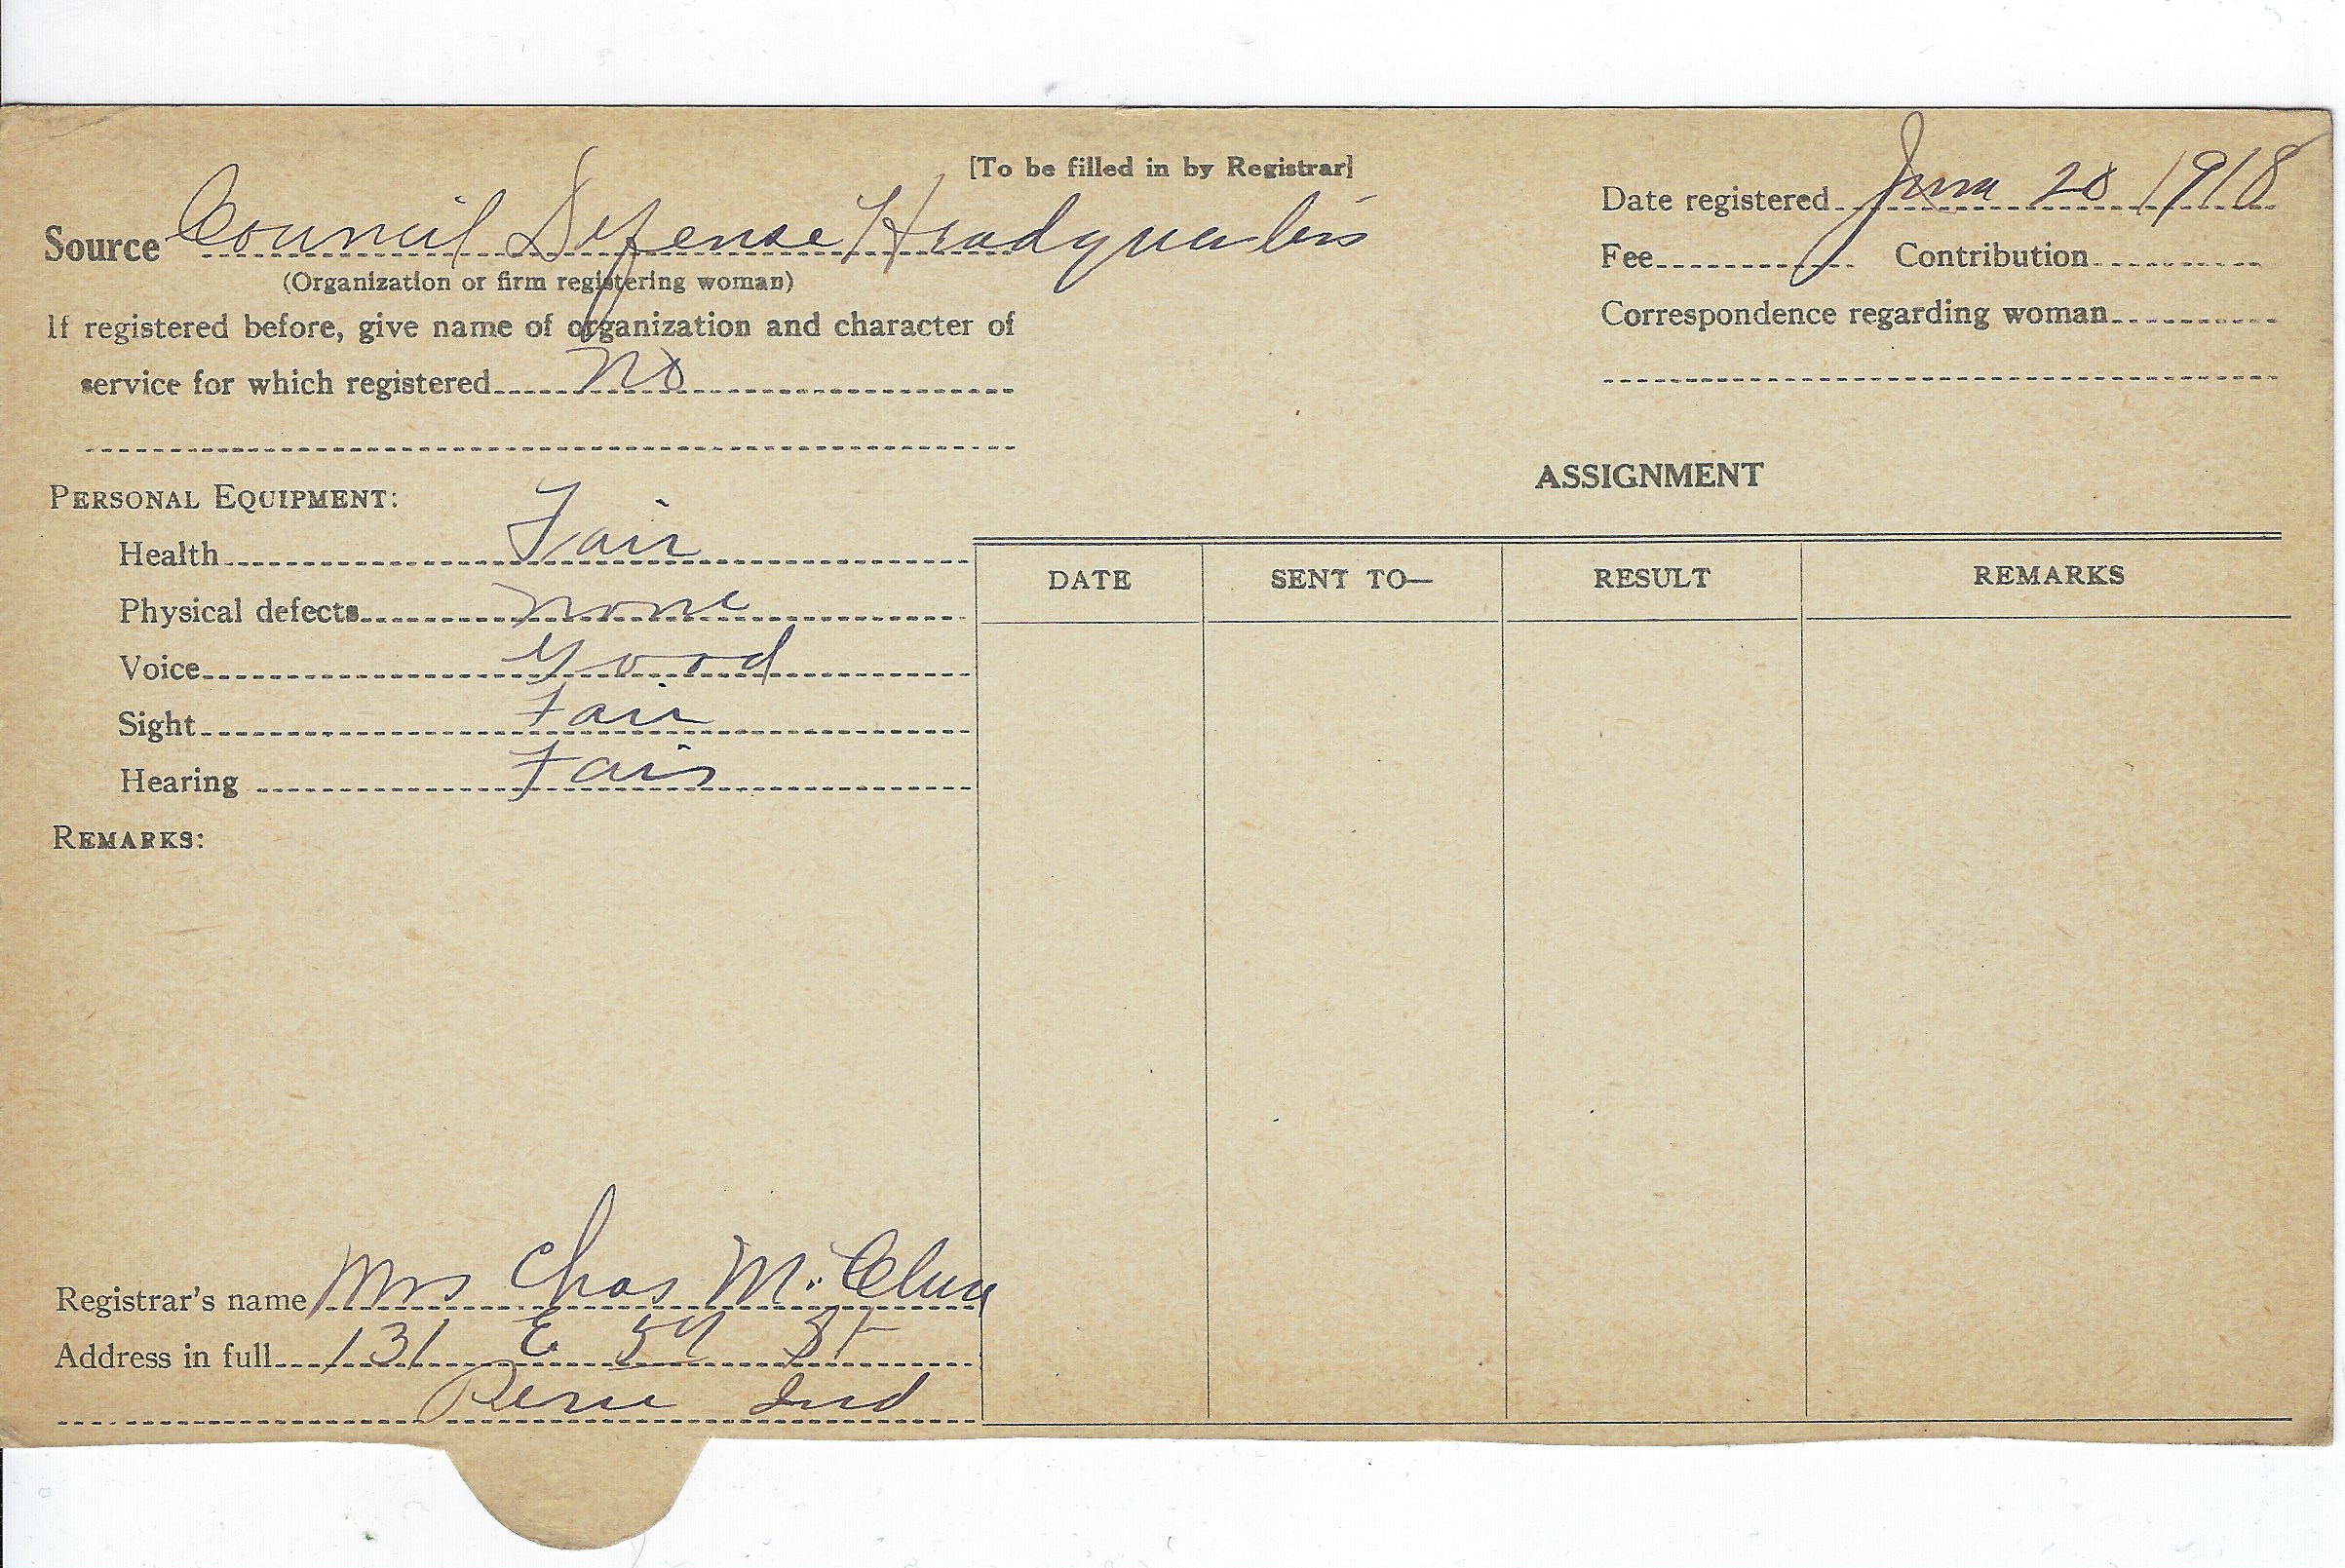 [To be filled in by Registrar]
Source Council Defense Headquarters
(Organization or firm registering woman)
If registered before, give name of organization and character of
service for which registered No
Date registered 1918
Fee Contribution
Correspondence regarding woman
PERSONAL EQUIPMENT:
Health Fair
Physical defects none
Voice Good
Sight Fair
Hearing Fair
REMARKS:
ASSIGNMENT
DATE SENT TO— RESULT REMARKS
Registrar's name Mrs Chas
Address in full 131 E St
Peru Ind